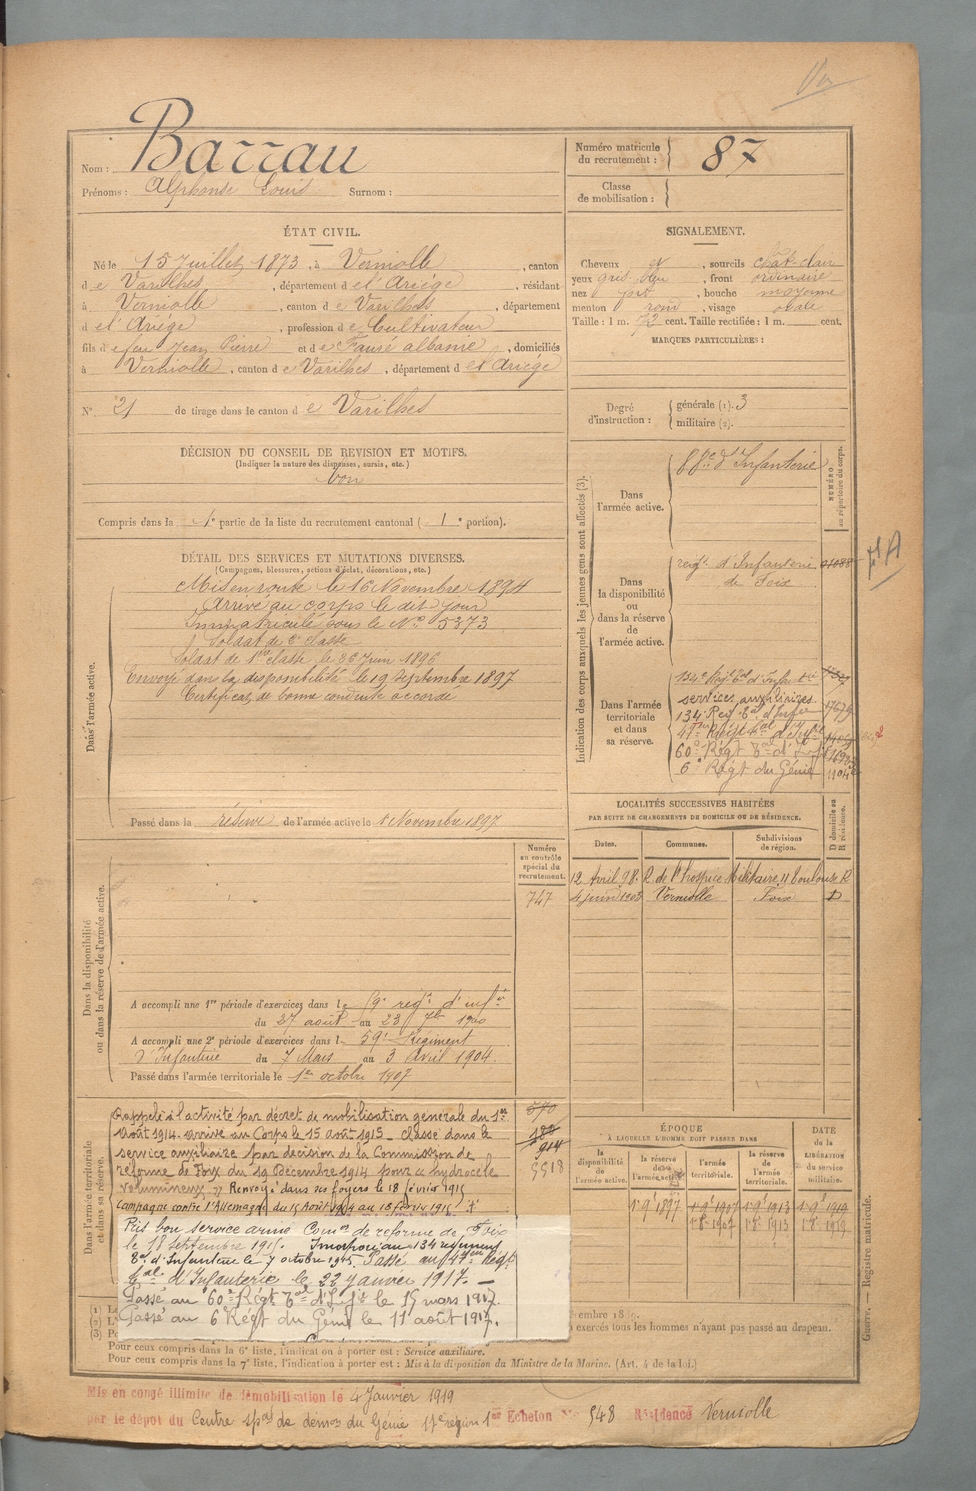 Nom : Barrau
Prénoms : Alphonse Louis Surnom :
Numéro matricule du recrutement : 87
Classe de mobilisation :
ÉTAT CIVIL.
Né le 15 Juillet 1873, à Verniolle, canton
de Varilhes, département de l'Ariège, résidant
à Verniolle, canton de Varilhes, département
de l'Ariège, profession de Cultivateur
fils de feu Jean Pierre et de Fauré albanie, domiciliés
à Verniolle, canton de Varilhes, département de l'Ariége
N° 21 de tirage dans le canton de Varilhes
SIGNALEMENT.
Cheveux et, sourcils chât-clair
yeux gris bleu, front ordinaire
nez, bouche moyenne
menton rond, visage ovale
Taille : 1 m. 72 cent. Taille rectifiée : 1 m. cent.
MARQUES PARTICULIÈRES :
Degré d'instruction : générale (1). 3
militaire (2).
DÉCISION DU CONSEIL DE REVISION ET MOTIFS.
(Indiquer la nature des dispenses, sursis, etc.)
bon
Compris dans la 1e partie de la liste du recrutement cantonal ( 1e portion).
DÉTAIL DES SERVICES ET MUTATIONS DIVERSES.
(Campagnes, blessures, actions d'éclat, décorations, etc.)
Dans l'armée active.
Mis en route le 16 Novembre 1894
Arrivé au corps le dit jour
Immatriculé sous le N° 5373
Soldat de 2e classe
Soldat de 1ère classe le 26 Juin 1896
Envoyé dans la disponibilité le 19 Septembre 1897
Certificat de bonne conduite accordé
Passé dans la réserve de l'armée active le 1er Novembre 1897
Indication des corps auxquels les jeunes gens sont affectés (3).
NUMÉRO au répertoire du corps.
Dans l'armée active.
88e d'Infanterie
Dans la disponibilité ou dans la réserve de l'armée active.
regt d'Infanterie 01088
de Foix
Dans l'armée territoriale et dans sa réserve.
134e Regt Tal d'Infterie
services auxiliaires.
134e Reg. Tal d'Infie
47me Régt Tal d'Infie
60e Régt Tal d'Inf
6e Régt du Génie
LOCALITÉS SUCCESSIVES HABITÉES
PAR SUITE DE CHANGEMENTS DE DOMICILE OU DE RÉSIDENCE.
Dates. Communes. Subdivisions de région. D domicile ou R résidence.
12 Avril 98 R. de l'hospice Militaire 11 Toulouse R
4 juin 1903 Verniolle Foix D
Dans la disponibilité ou dans la réserve de l'armée active.
Numéro au contrôle spécial du recrutement.
747
A accompli une 1re période d'exercices dans le 59e regt d'infie
du 27 août au 23 7bre 1900
A accompli une 2e période d'exercices dans le 59e Régiment
d'Infanterie du 7 Mars au 3 Avril 1904.
Passé dans l'armée territoriale le 1er octobre 1907
Dans l'armée territoriale et dans sa réserve.
Rappelé à l'activité par décret de mobilisation générale du 1er
Août 1914. arrivé au Corps le 15 août 1915 – classé dans le
service auxiliaire par décision de la Commission de
réforme de Foix du 19 Décembre 1914 pour « hydrocèle
volumineux » Renvoyé dans ses foyers le 18 février 1915
Campagne contre l'Allemagne du 15 Août 1914 au 18 février 1915
Pris bon service armé Comon de réforme de Foix
le 18 septembre 1915. Incorporé au 134 régiment
Tal d'Infanterie le 7 octobre 1915. Passé au 47em Régt
tal d'Infanterie le 22 janvier 1917. —
Passé au 60e Régt Tal d'Infie le 15 mars 1917.
Passé au 6e Régt du Génie le 11 août 1917.
570
914
5518
ÉPOQUE
À LAQUELLE L'HOMME DOIT PASSER DANS
la disponibilité de l'armée active. la réserve de l'armée active. l'armée territoriale. la réserve de l'armée territoriale.
DATE de la LIBÉRATION du service militaire.
1 9 1897 1 9 1907 1 9 1913 1 9 1919
1 8 1907 1 8 1913 1 8 1919
exercés tous les hommes n'ayant pas passé au drapeau.
Pour ceux compris dans la 6e liste, l'indication à porter est : Service auxiliaire.
Pour ceux compris dans la 7e liste, l'indication à porter est : Mis à la disposition du Ministre de la Marine. (Art. 4 de la loi.)
Guerre. — Registre matricule.
Mis en congé illimité de démobilisation le 4 Janvier 1919
par le dépôt du Centre spal de démon du Génie 17e région 1er Echelon No 548 Résidence Verniolle